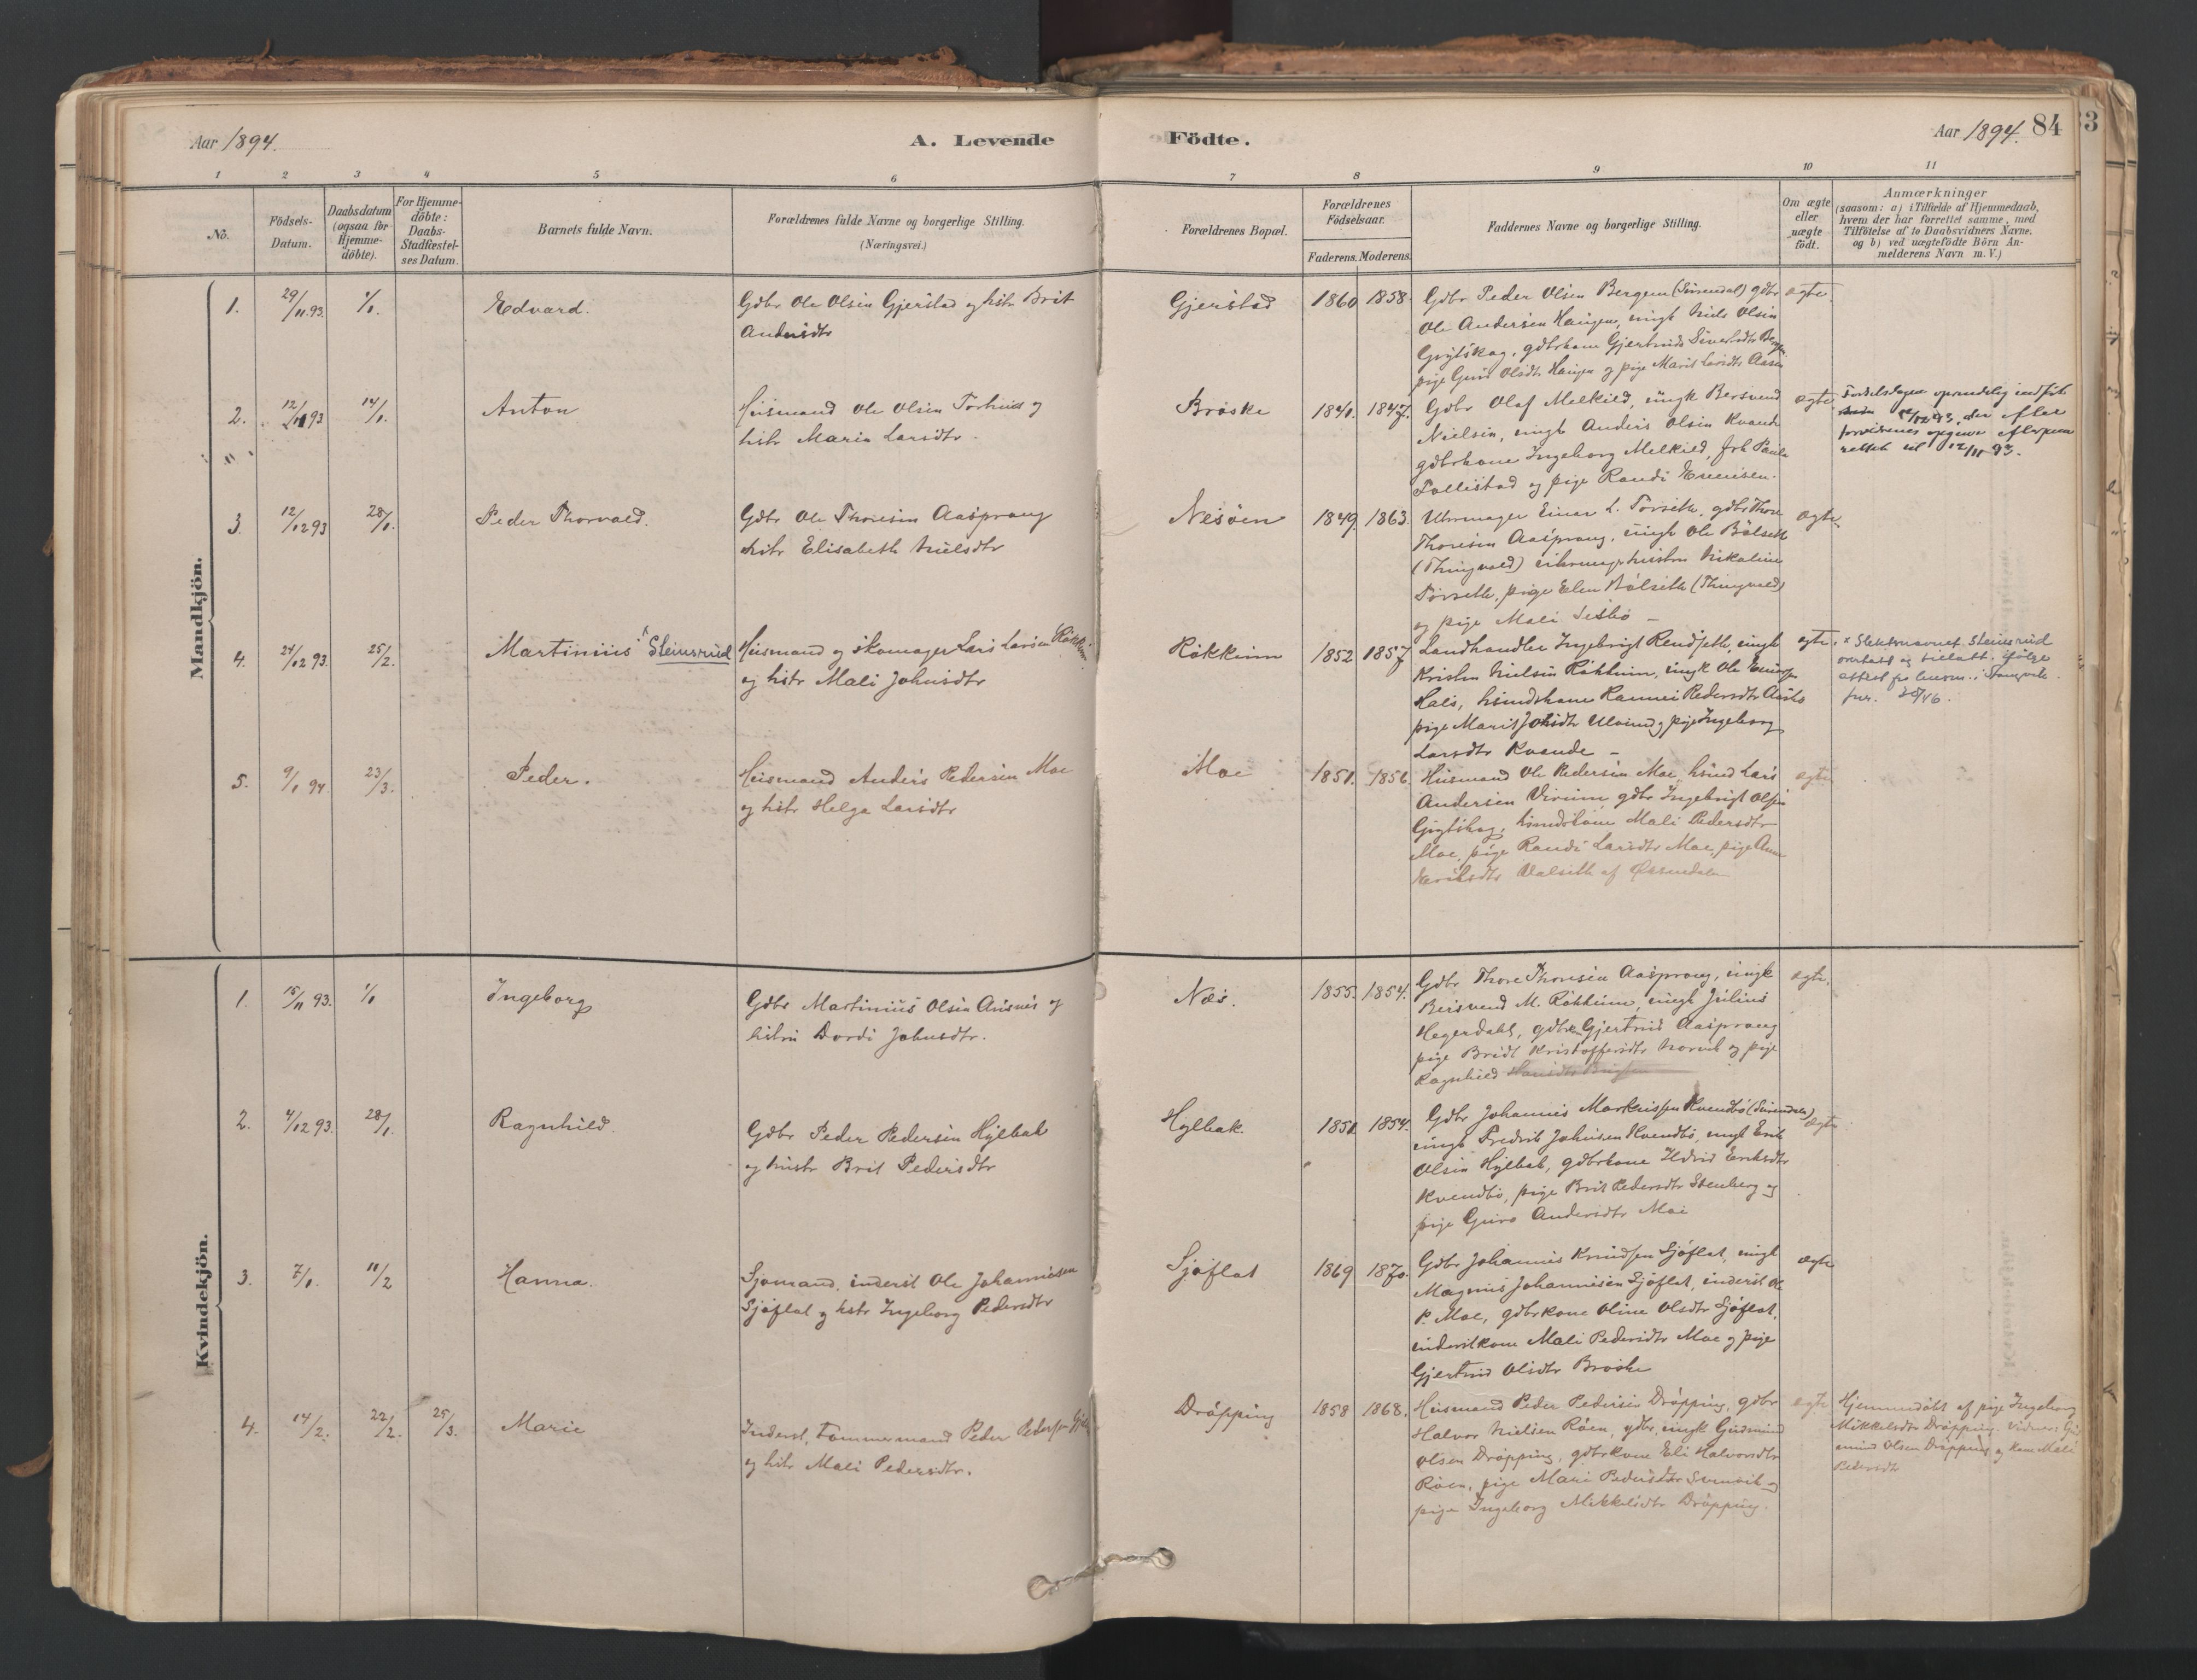 Aar 1894.
A. Levende
Födte.
Aar 1894.
84
3
1
2
3
4
5
6
7
8
9
10
11
No.
Födsels-
Datum.
Daabsdatum
(ogsaa for
Hjemme-
döbte).
For Hjemme-
döbte:
Daabs-
Stadfæstel-
ses Datum.
Barnets fulde Navn.
Forældrenes fulde Navne og borgerlige Stilling.
(Næringsvei.)
Forældrenes Bopæl.
Forældrenes
Födselsaar.
Faderens. Moderens.
Faddernes Navne og borgerlige Stilling.
Om ægte
eller
uægte
födt.
Anmærkninger
(saasom: a) i Tilfælde af Hjemmedaab,
hvem der har forrettet samme, med
Tilföielse af to Daabsvidners Navne,
og b) ved uægtefödte Börn An-
melderens Navn m. V.)
Mandkjön.
1.
29/11 93.
1/1.
Edvard.
Gdbr Ole Olsen Gjerstad og hstr Brit
Andersdtr
Gjerstad
1860
1858.
Gdbr Peder Olsen Bergem (Surendal) gdbr
Ole Andersen Haugen, ungk Nils Olsen
Grytskog, gdbrkone Gjertrud Sivertsdtr
pige Guri Olsdtr Haugen og pige Marit Larsdtr Aasen
ægte.
2.
12/11 93
14/1.
Anton
Husmand Ole Olsen
og
hstr Marie Larsdtr.
Bröske
1841.
1847.
Gdbr Olaf Melkild, ungk Bersvend
Nielsen, ungk Anders Olsen Kvande
gdbrkone Ingeborg Melkild, frk Paula
Tallistad og pige Randi Ennisen.
ægte
Födselsdagen oprindelig indfört
12/12 93, der efter
opgave
rettet til 12/11 93.
3.
12/12 93
28/1.
Peder Thorvald.
Gdbr Ole Thoresen Aasprang
hstr Elisabeth Nielsdtr
Nesöen
1849.
1863.
Uhrmager Einar L. Törseth, gdbr Thore
Thoresen Aasprang, ungk Ole Bölseth
(Thingvold) uhrmagerhustru Nikoline
Törseth, pige Elen Bölseth (Thingvold)
og pige Mali
ægte
4.
24/12 93.
25/2.
Martinius x Steinsrud
Husmand og skomager Lars Larsen Rökkum
og hstr Mali Johnsdtr
Rökkum
1852
1857
Landhandler Ingebrigt Rendseth, ungk
Kristen Nielsen Rökkum, ungk Ole
Hals, husmdskone Rannei Pedersdtr
pige Marit Johsdtr Ulvund og pige Ingeborg
Larsdtr Kvande –
ægte.
x Slektsnavnet Steinsrud
overtatt og tillatt. ifölge
attest fra lensm. i Stangvik
5.
9/1 94
23/3.
Peder.
Husmand Anders Pedersen Moe
og hstr Helga Larsdtr
Moe
1851.
1856.
Husmand Ole Pedersen Moe, husmd Lars
Andersen Virum, gdbr Ingebrigt Olsen
Grytskog, husmdskone Mali Pedersdtr
Moe, pige Randi Larsdtr Moe, pige Anne
Eriksdtr Valseth af Öksendalen
ægte
Kvindekjön.
1.
15/11 93.
1/1
Ingeborg
Gdbr Martinius Olsen Aasnes og
hstru Dordi Johnsdtr.
Næs.
1855.
1854.
Gdbr Thore Thoresen Aasprang, ungk
Bersvend M. Rökkum, ungk Julius
Hegerdahl, gdbrk Gjertrud Aasprang
pige Bridt Kristoffersdtr Norvik og pige
Ragnhild
ægte.
2.
4/12 93.
28/1.
Ragnhild.
Gdbr Peder Pedersen Hylbak
og hustr Brit Pedersdtr
Hylbak.
1851
1854.
Gdbr Johannes Markussen Kvendbö (Surendalen)
ungk Fredrik Johnsen Kvendbö, ungk Erik
Olsen Hylbak, gdbrkone Eldrid Eriksdtr
Kvendbö, pige Brit Pedersdtr Stenberg og
pige Guro Andersdtr Moe
ægte
3.
7/1.
11/2
Hanna.
Sjömand, inderst Ole Johannesen
Sjöflat og hstr Ingeborg Pedersdtr
Sjöflat
1869
1870.
Gdbr Johannes Knudsen Sjöflat, ungk
Magnus Johannesen Sjöflat, inderst Ole
P. Moe, gdbrkone Oline Olsdtr Sjöflat,
inderstkone Mali Pedersdtr Moe og pige
Gjertrud Olsdtr Bröske
ægte
4.
14/2.
22/2.
25/3.
Marie
Inderst, Tömmermand Peder Peders
og hstr Mali Pedersdtr.
Dröpping
1858
1868.
Husmand Peder Pedersen Dröpping, gdbr
Halvor Nielsen Röen, gdbr, ungk Gudmund
Olsen Dröpping, gdbrkone Eli Halvorsdtr
Röen, pige Mari Pedersdtr Svinvik og
pige Ingeborg Mikkelsdtr Dröpping.
ægte
Hjemmedöbt af pige Ingeborg
Mikkelsdtr Dröpping. Vidner: Gud-
mund Olsen Dröpping og kone Mali
Pedersdtr